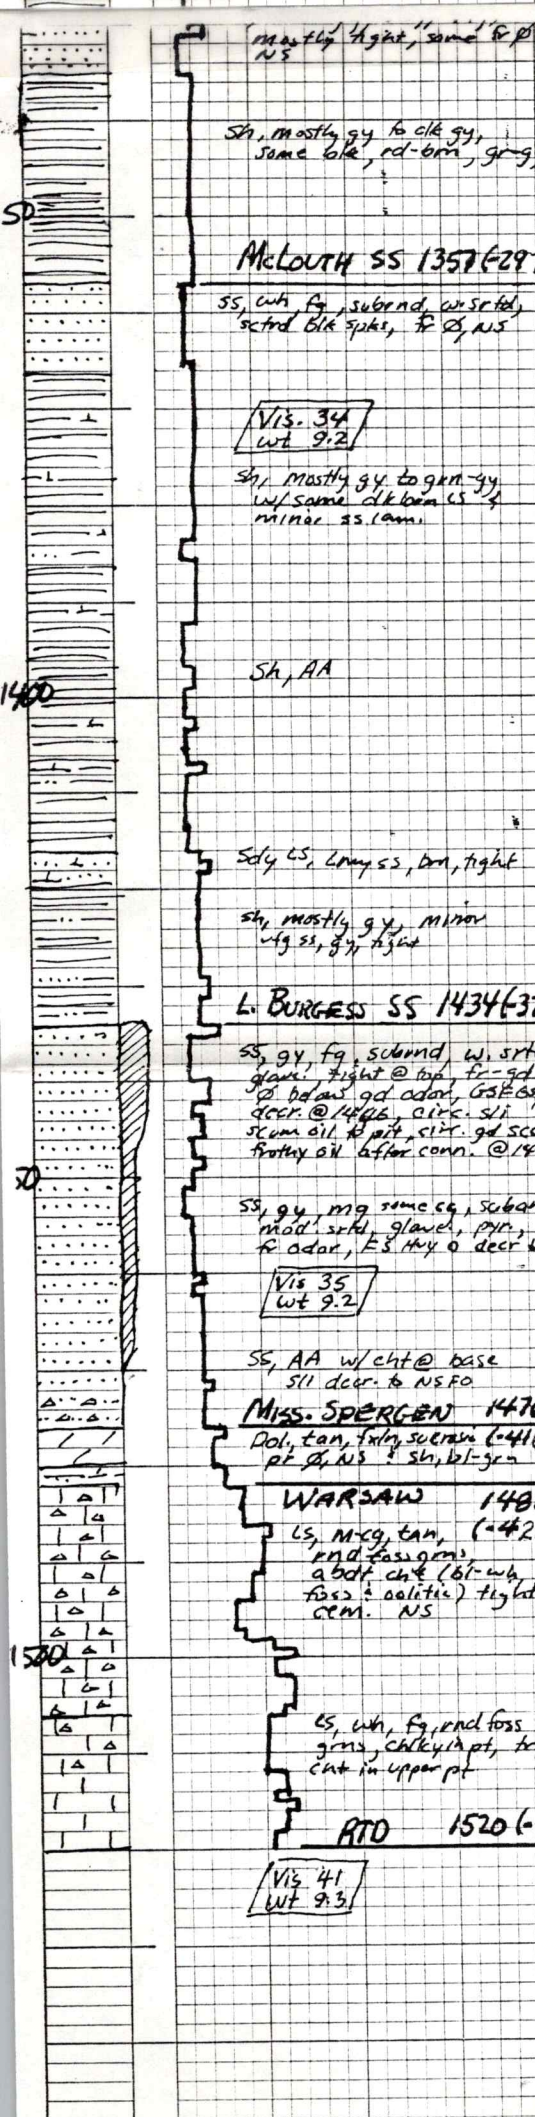 mostly "tight", some fr Ø
NS
Sh, mostly gy to dk gy,
some blk, rd-brn, gr-g
50
McLOUTH SS 1357 (-29
SS, wh, fg, subrnd, w. srtd,
sctrd blk spks, fr Ø, NS
Vis. 34
wt 9.2
Sh, mostly gy to grn-gy
w/ some dk brn LS &
minor ss lam.
Sh, AA
1400
Sdy LS, Lmy SS, brn, tight
Sh, mostly gy, minor
vfg ss, gy, tight
L. BURGESS SS 1434 (-37
SS, gy, fg, subrnd, w. srt
glauc. tight @ top, fr-gd
Ø below gd odor, GSFG
decr. @ 1446, circ. sli
scum oil to pit, circ. gd sc
frothy oil after conn. @ 14
50
SS, gy, mg some cg, suba
mod srtd, glauc, pyr,
fr odor, FS Hvy o decr
Vis 35
wt 9.2
SS, AA w/ cht @ base
Sli decr. to NSFO
MISS. SPERGEN 1476
Dol, tan, fxln, sucrosic (-41
pr Ø, NS & sh, bl-grn
WARSAW 148
LS, m-cg, tan, (-42
rnd foss grns,
abdt cht (bl-wh,
foss & oolitic) tight
cem. NS
1500
LS, wh, fg, rnd foss
grns, chlky in pt, tr
cht in upper pt
RTD 1520 (-
Vis 41
wt 9.3